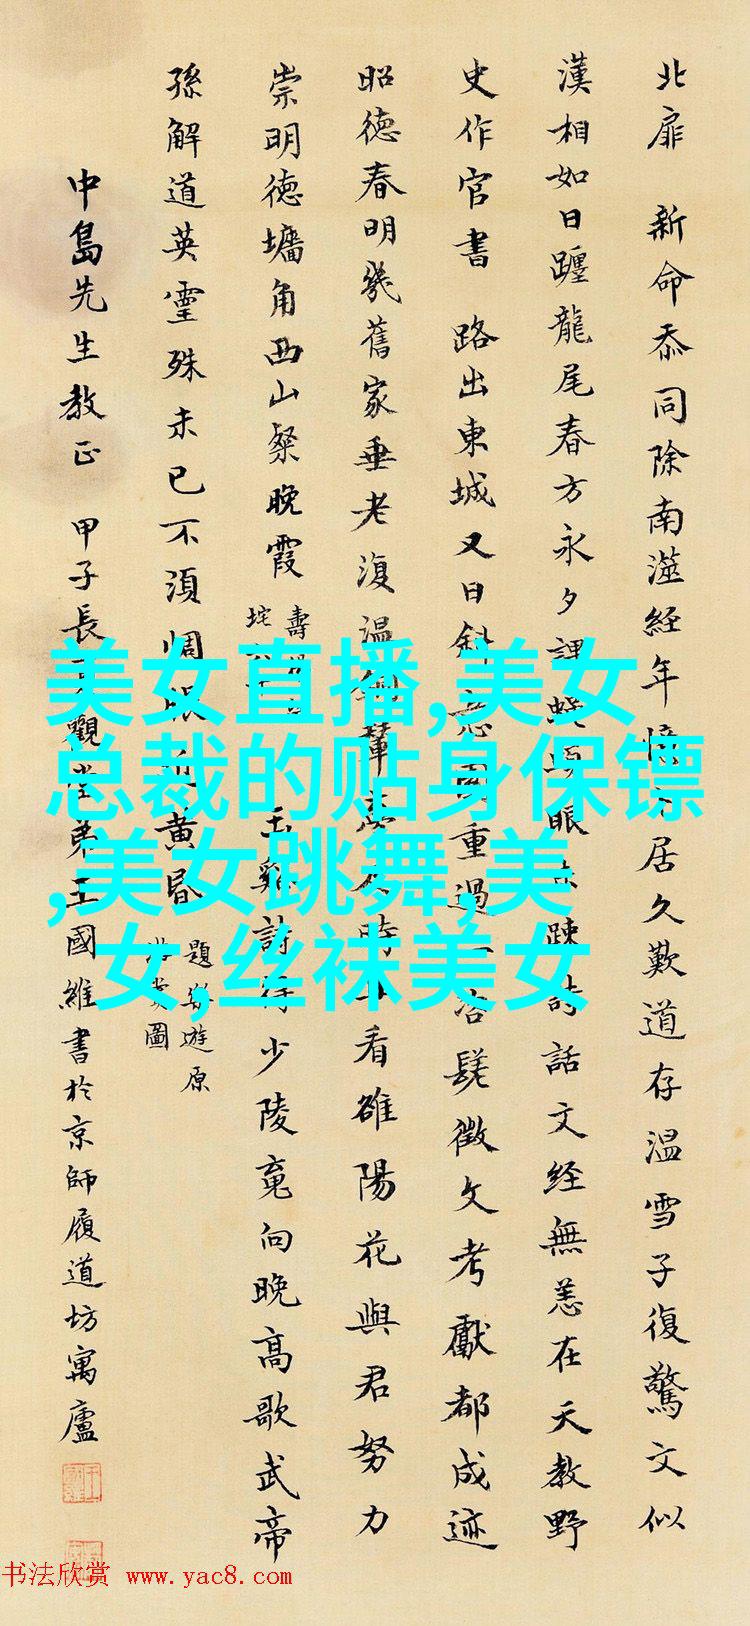 北扉 新命忝同除南遊經年憶 居久歎道存温雪子復驚文似
漢相如日躔龍尾春方永夕課 眼 疎詩話文經無恙在天教野
史作官書 路出東城又日斜 重過 落髦徵文考獻都成迹
昭德春明幾舊家垂老復温 輦 時 看雒陽花與君努力
崇明德墉角西山粲晚霞 壽
玉谿詩 少陵竟向晚高歌武帝
孫解道英靈殊未已不須惆悵近黄昏 題樂遊原
圖
中島先生教正 甲子長 觀堂弟王國維書於京師履道坊寓廬
美女直播,美女
总裁的贴身保镖
,美女跳舞,美
女,丝袜美女
书法欣赏 www.yac8.com